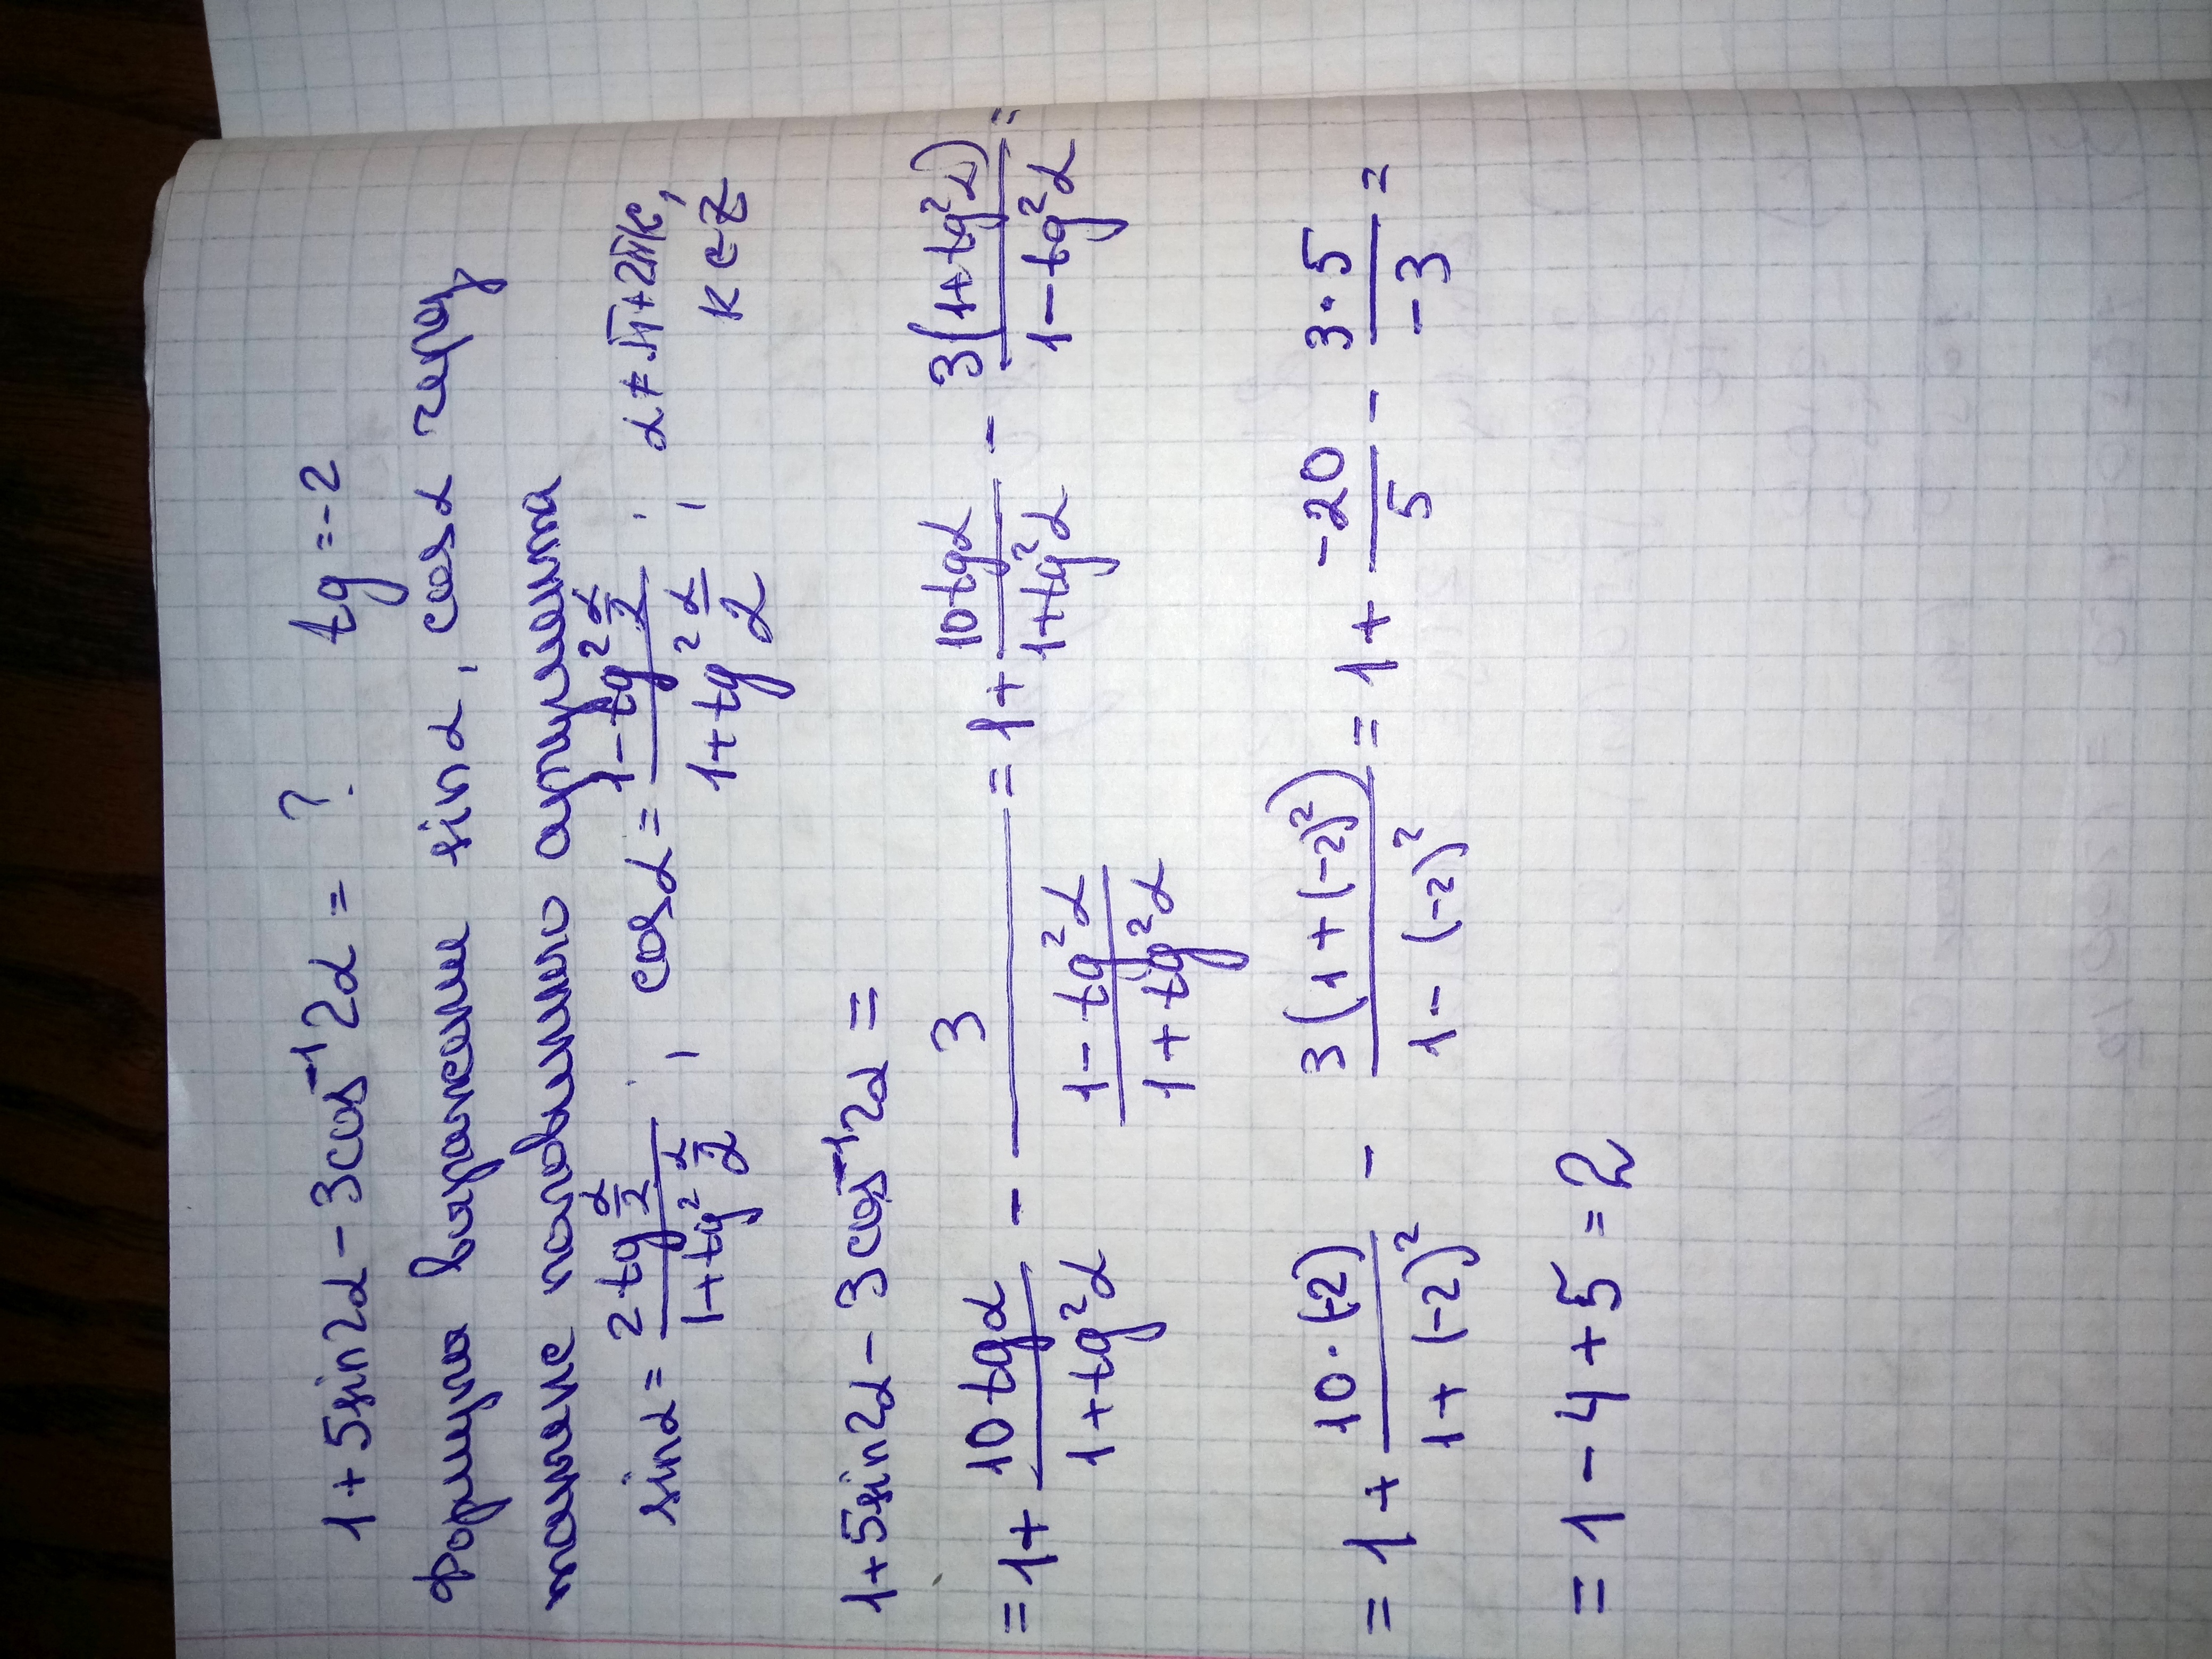 1 + 5sin2α - 3cos⁻¹2α = ? tg = -2
Формула выражение sin α, cos α через
тангенс половинного аргумента
sinα = (2tg α/2)/(1+tg² α/2) ; cosα = (1-tg² α/2)/(1+tg² α/2) ; α ≠ π+2πk, k∈Z
1+5sin2α - 3cos⁻¹2α =
= 1+ (10tgα)/(1+tg²α) - 3/((1-tg²α)/(1+tg²α)) = 1+ (10tgα)/(1+tg²α) - (3(1+tg²α))/(1-tg²α) =
= 1+ (10·(-2))/(1+(-2)²) - (3(1+(-2)²))/(1-(-2)²) = 1+ (-20)/5 - (3·5)/(-3) =
= 1 - 4 + 5 = 2